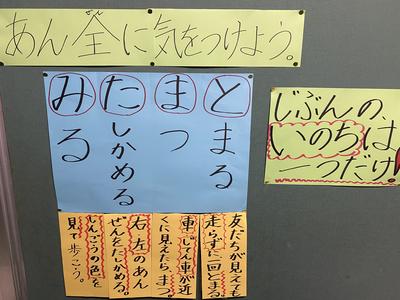 あん全に気をつけよう。
ぜん
とまる
まつ
たしかめる
みる
じぶんの、
いのちは
一つだけ!
友だちが見えても
走らずに一回とまる
車、じてん車が近
くに見えたら、まつ
右、左のあん
ぜんをたしかめる。
しんごうの色を
見て歩こう。